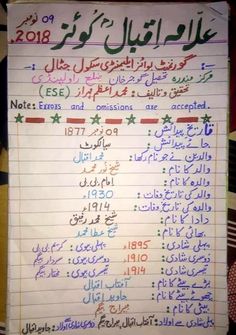 09 نومبر 2018ء
علامہ اقبال کوئز
گورنمنٹ بوائز ایلیمنٹری سکول جنڈال
مرکز مندرہ تحصیل گوجرخان ضلع راولپنڈی
تحقیق و تالیف: محمد اعظم (ESE)
Note: Errors and omissions are accepted.
تاریخ پیدائش: 09 نومبر 1877
جائے پیدائش: سیالکوٹ
والدین نے جو نام رکھا: محمد اقبال
والد کا نام: شیخ نور محمد
والدہ کا نام: امام بی بی
والد کی تاریخ وفات: 1930ء
والدہ کی تاریخ وفات: 1914ء
دادا کا نام: شیخ محمد رفیق
بھائی کا نام: شیخ عطا محمد
پہلی شادی: 1895ء پہلی بیوی: کریم بی بی
دوسری شادی: 1910ء دوسری بیوی: سردار بیگم
تیسری شادی: 1914ء تیسری بیوی: مختار بیگم
بڑے بیٹے کا نام: آفتاب اقبال
چھوٹے بیٹے کا نام: جاوید اقبال
بیٹی کا نام: معراج بیگم
پہلی شادی سے اولاد: آفتاب اقبال، معراج بیگم دوسری شادی اولاد: جاوید اقبال